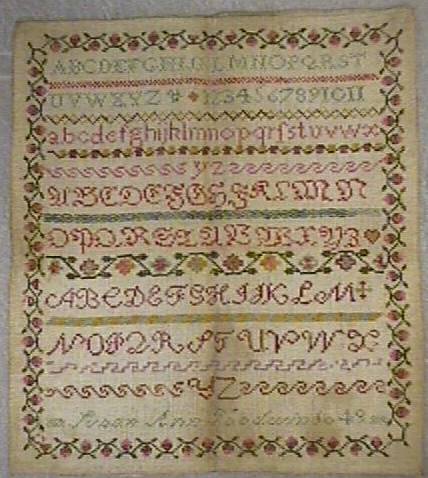 ABCDEFGHIJKLMNOPQRST
UVWXYZ 1234567891011
abcdefghijklmnopqrſstuvwx
yz
ABCDEFGHJKLMN
OPQRSTUVWXYZ
ABCDEFGHIJKLM
NOPQRSTUVWX
YZ
Susan Ann Goodwin 49